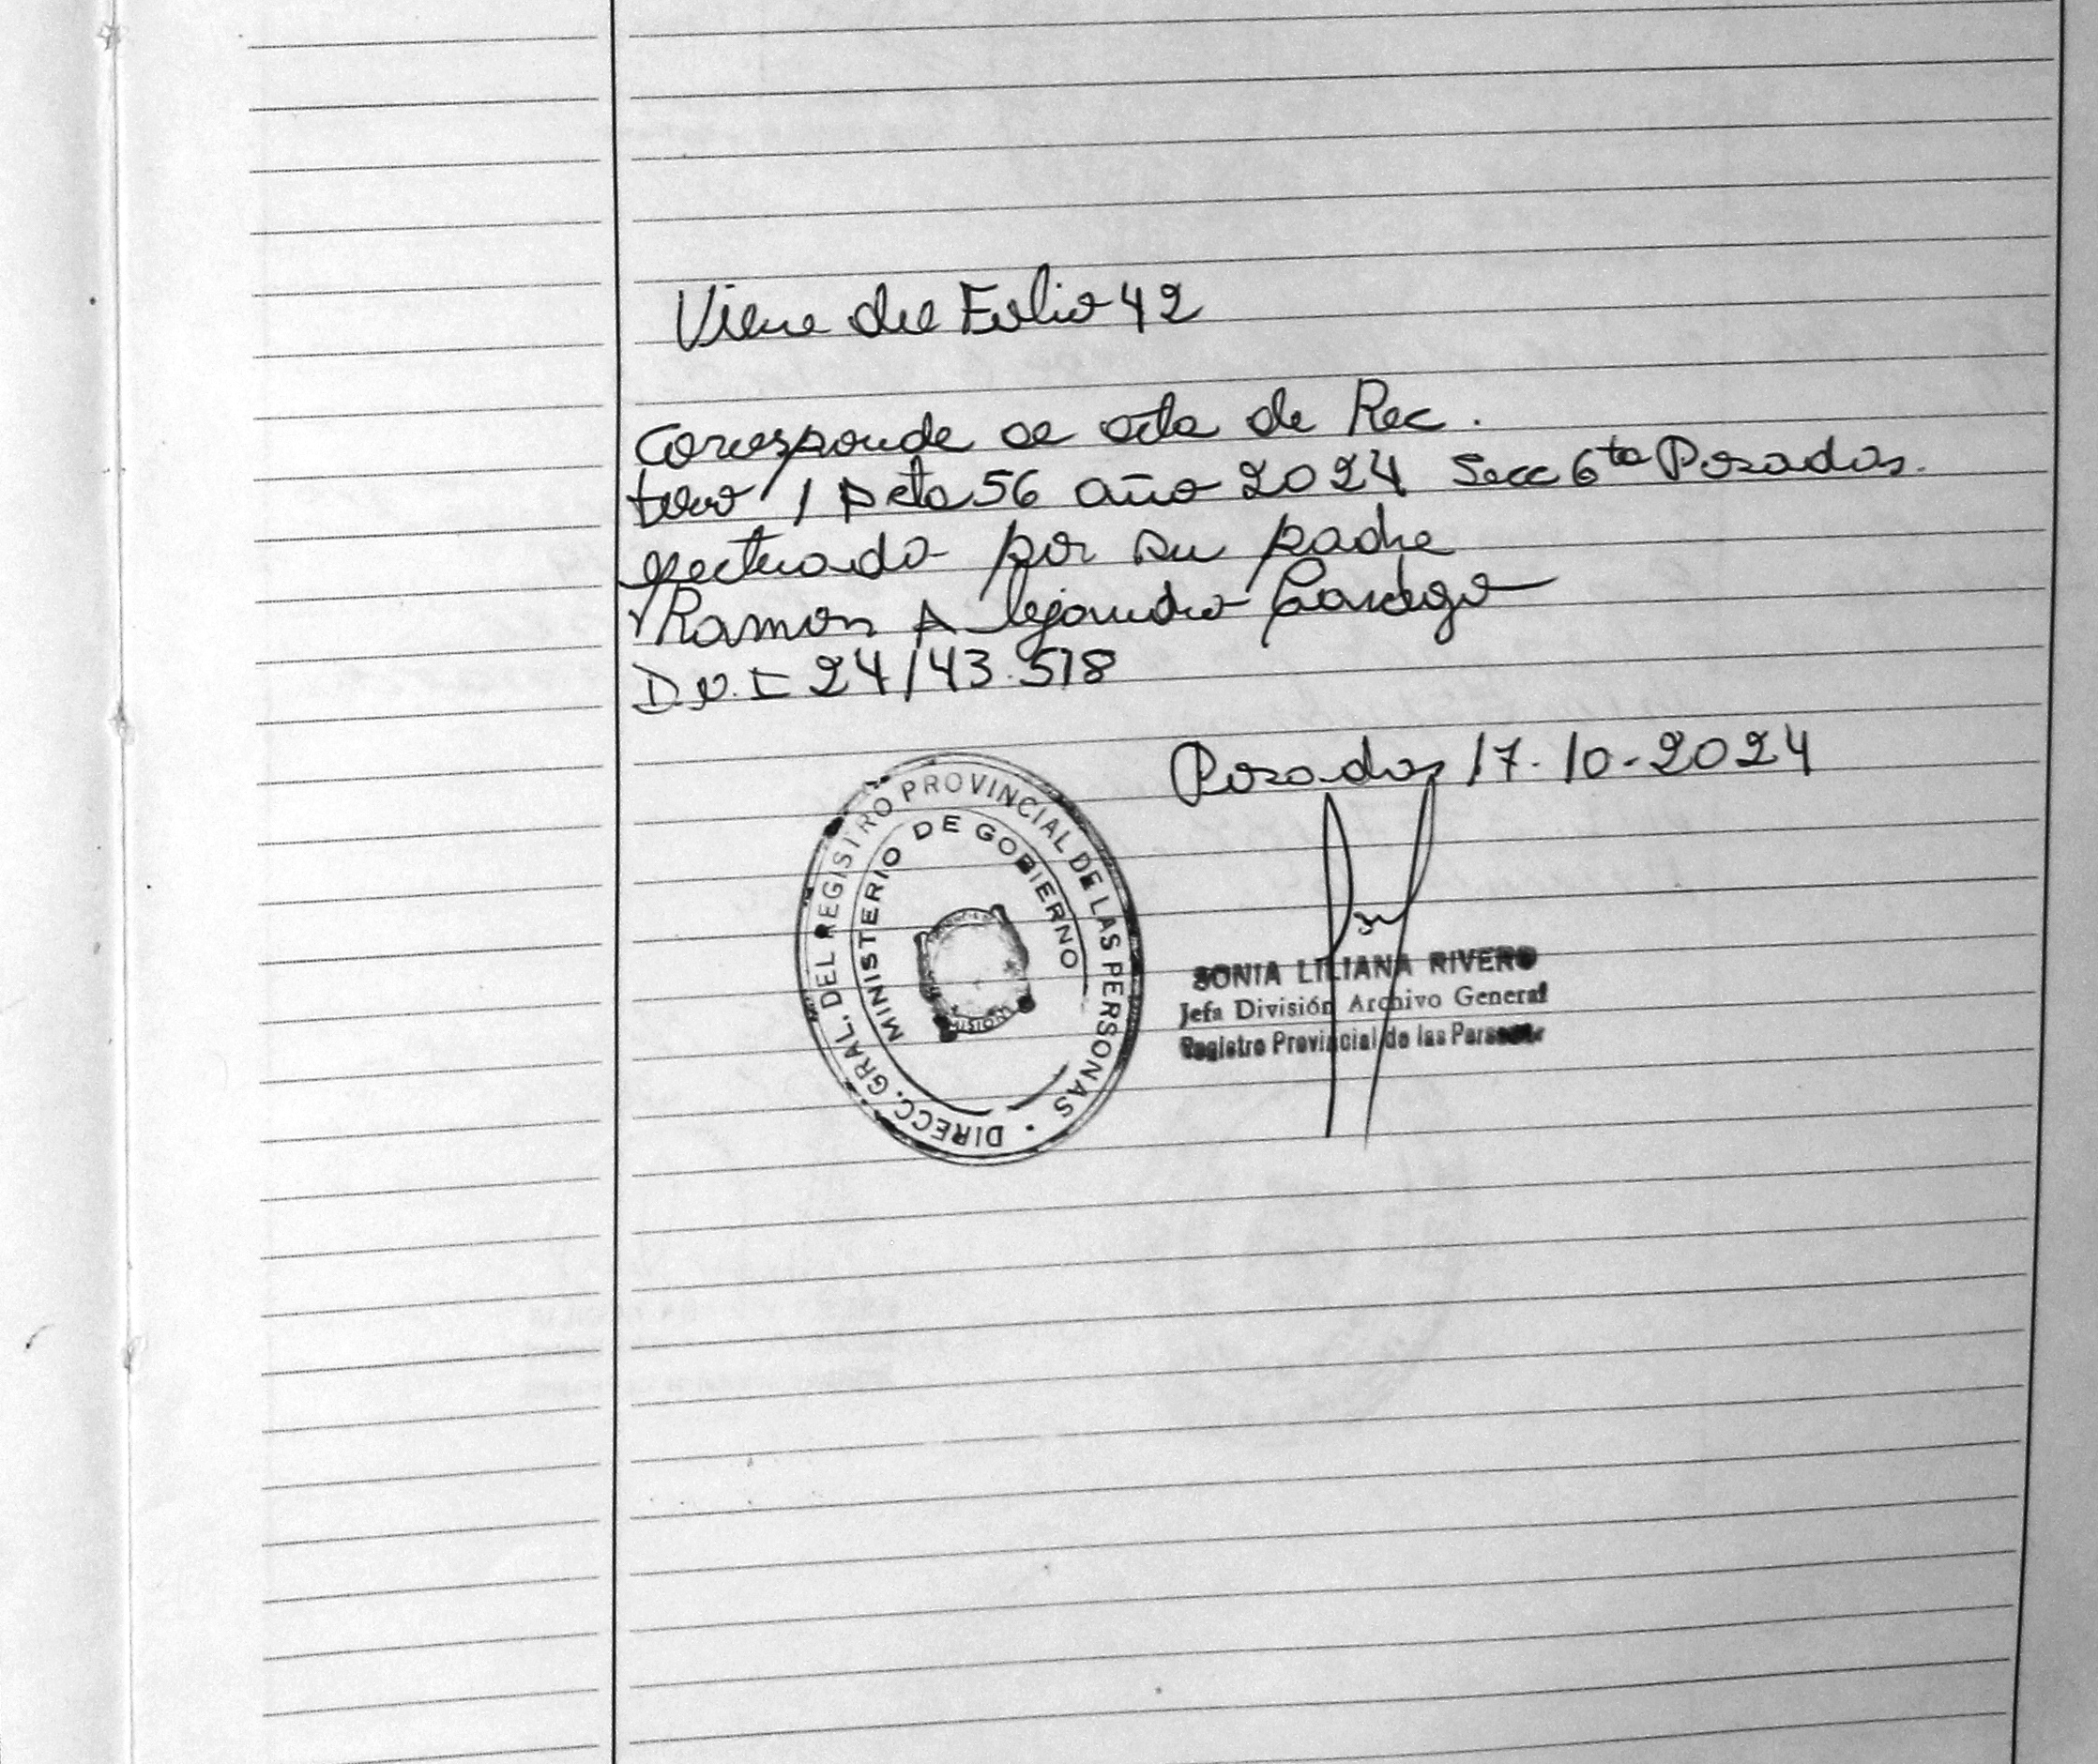 Viene del Folio 42
Corresponde al acta de Rec.
tomo 1 Acta 56 año 2024 Secc 6ta Posadas.
efectuado por su padre
Ramon Alejandro
D.N.I 24/143.518
Posadas 17-10-2024
DIRECC. GRAL. DEL REGISTRO PROVINCIAL DE LAS PERSONAS
MINISTERIO DE GOBIERNO
SONIA LILIANA RIVERO
Jefa División Archivo General
Registro Provincial de las Personas